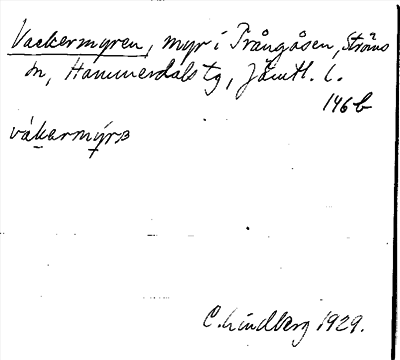 Vackermyren, myr i Trångåsen, Ströms
sn, Hammerdals tg, Jämtl. l.
146b
vákarmýrɜ
C. Lindberg 1929.